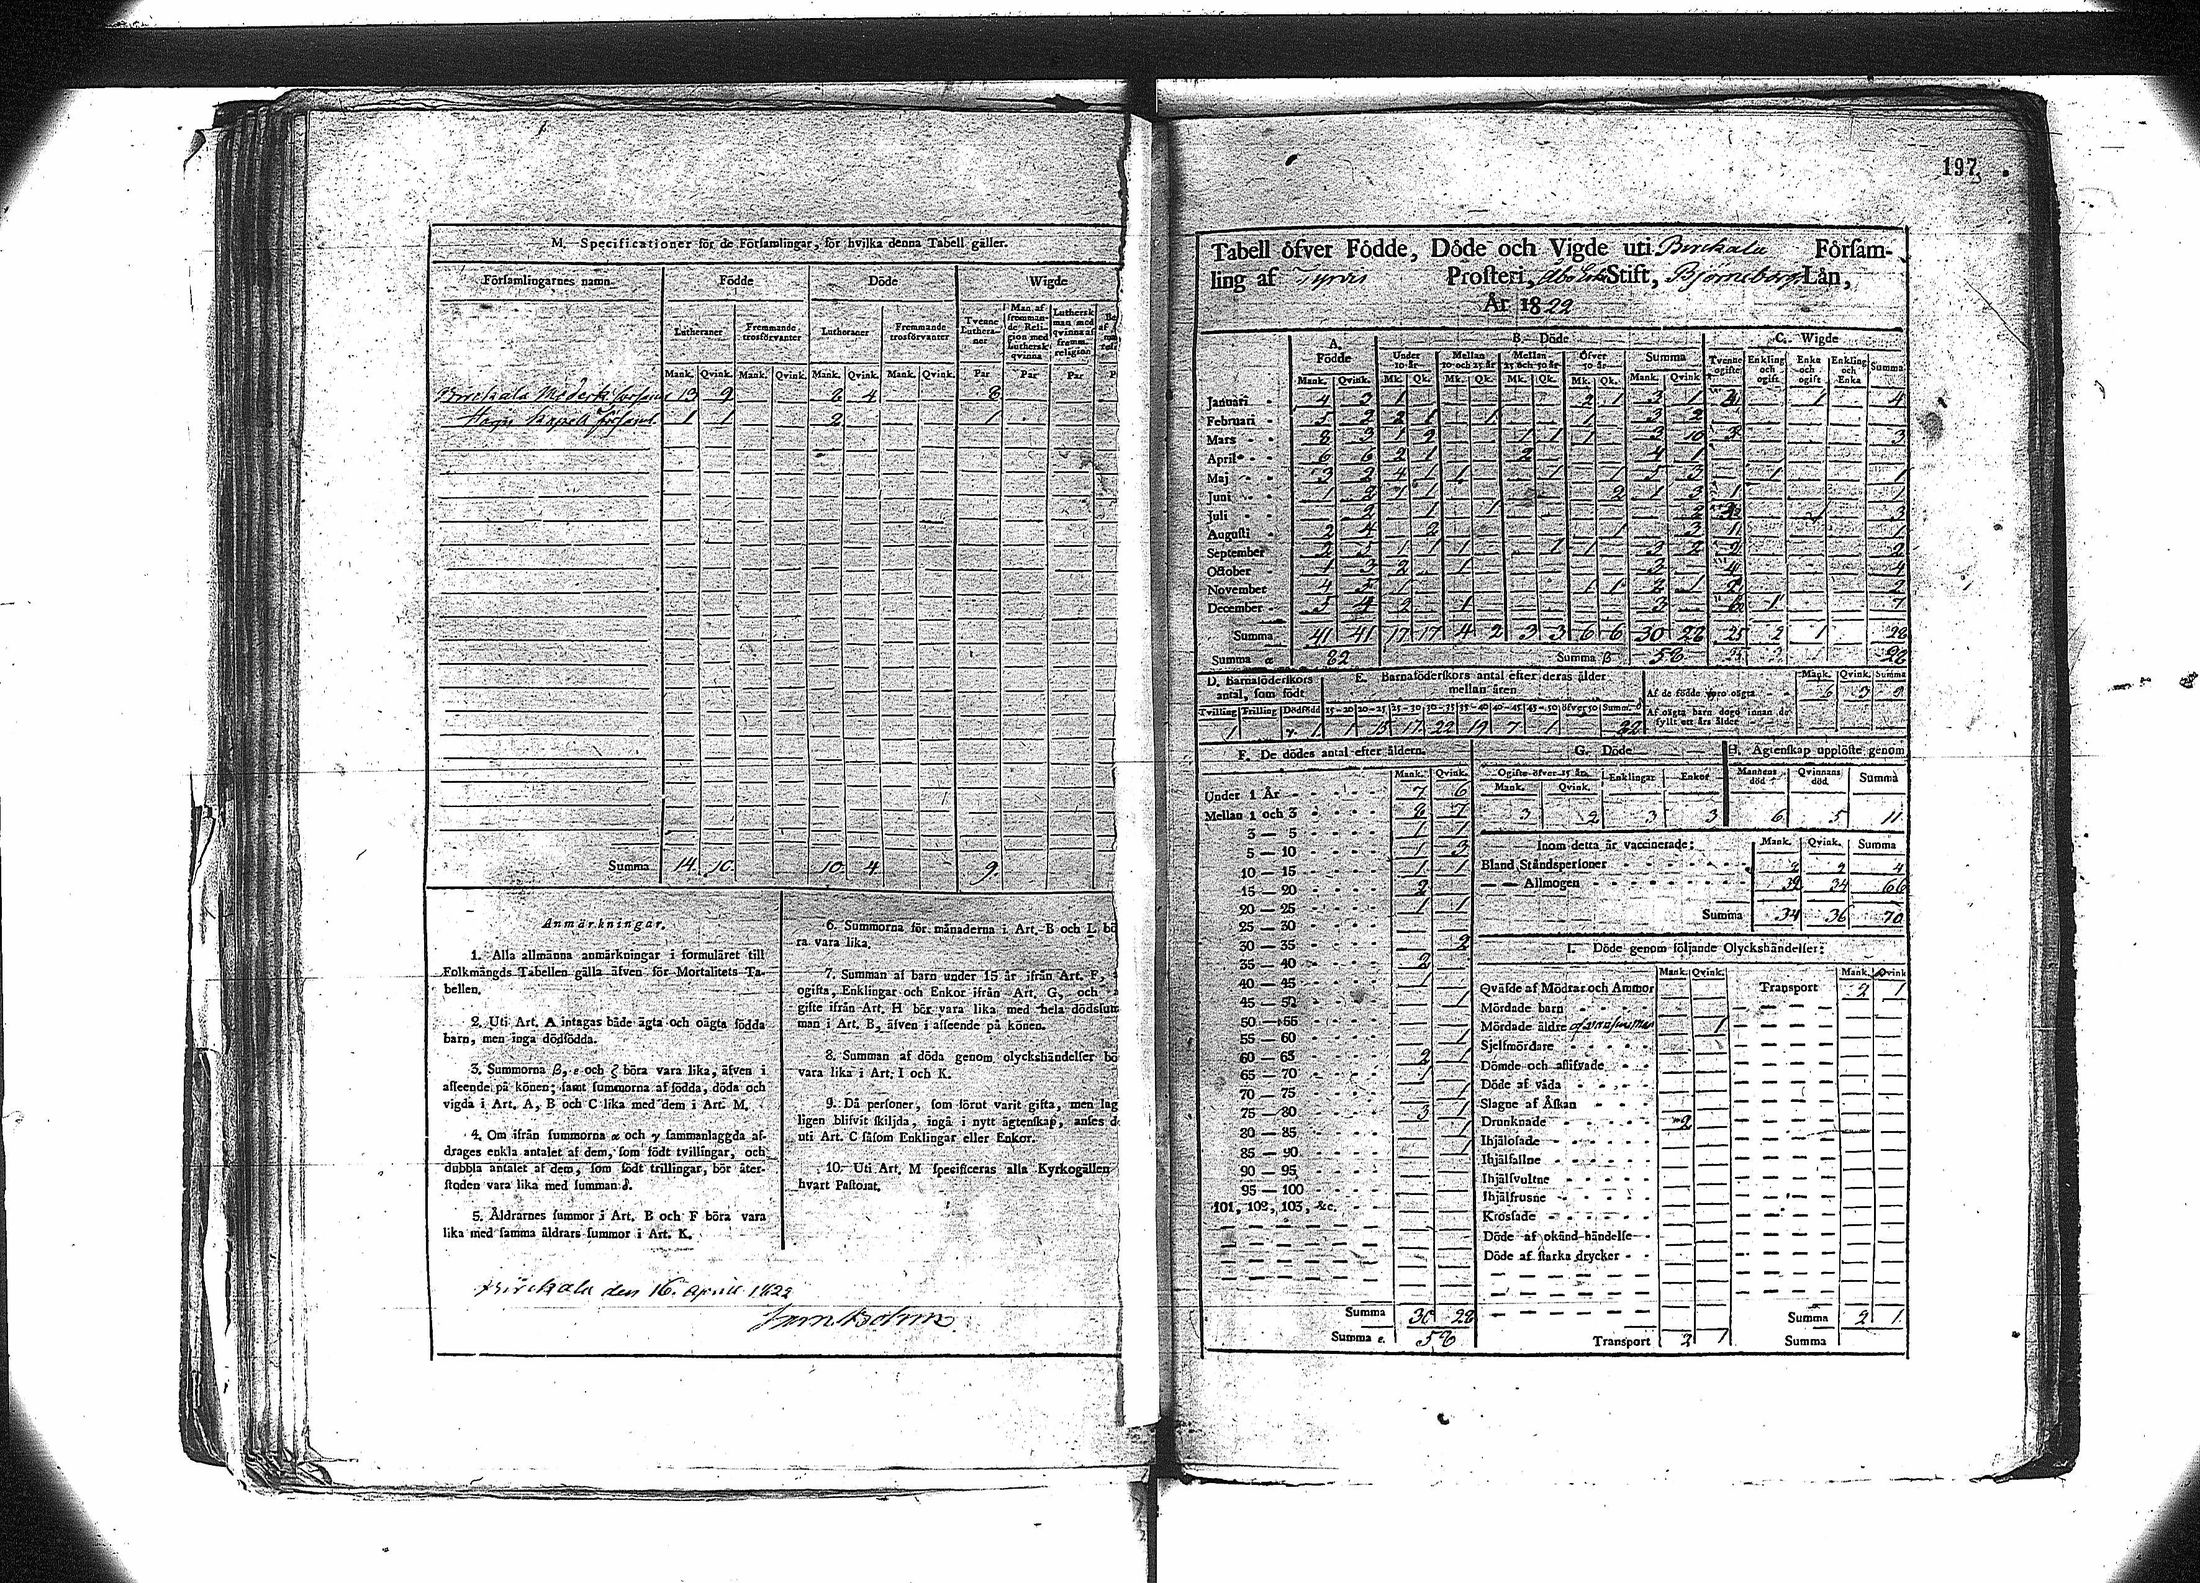 M. Specificationer för de Församlingar, för hvilka denna Tabell gäller.
Församlingarnes namn. Födde Döde Wigde
Lutheraner Fremmande trosförvanter Lutheraner Fremmande trosförvanter Tvenne Lutheraner Man af fremmande Religion med Luthersk qvinna Luthersk man med qvinna af fremm. religion
Mank. Qvink. Mank. Qvink. Mank. Qvink. Mank. Qvink. Par Par Par
Birckala Moderk. 13 9 8 4 8
Kapell 1 1 2 1
Summa 14 10 10 4 9
Anmärkningar.
1. Alla allmänna anmärkningar i formuläret till
Folkmängds-Tabellen gälla äfven för Mortalitets-Ta-
bellen.
2. Uti Art. A intagas både ägta och oägta födda
barn, men inga dödfödda.
3. Summorna β, ε och ζ böra vara lika, äfven i
afseende på könen; samt summorna af födda, döda och
vigda i Art. A, B och C lika med dem i Art. M.
4. Om ifrån summorna α och γ sammanlaggda af-
drages enkla antalet af dem, som födt tvillingar, och
dubbla antalet af dem, som födt trillingar, bör åter-
stoden vara lika med summan δ.
5. Åldrarnes summor i Art. B och F böra vara
lika med samma åldrars summor i Art. K.
6. Summorna för månaderna i Art. B och L bö
ra vara lika.
7. Summan af barn under 15 år ifrån Art. F,
ogifta, Enklingar och Enkor ifrån Art. G, och
gifte ifrån Art. H bör vara lika med hela dödssum
man i Art. B, äfven i afseende på könen.
8. Summan af döda genom olyckshändelser bö
vara lika i Art. I och K.
9. Då personer, som förut varit gifta, men lag
ligen blifvit skiljda, ingå i nytt ägtenskap, anses d
uti Art. C såsom Enklingar eller Enkor.
10. Uti Art. M specificeras alla Kyrkogällen
hvart Pastorat.
Birckala den 16. April 1822
197
Tabell öfver Födde, Döde och Vigde uti Birckala Församling
ling af Tyrvis Prosteri, Åbo Stift, Björneborgs Län,
År 1822
A. Födde B. Döde C. Wigde
Under 10 år Mellan 10 och 25 år Mellan 25 och 50 år Öfver 50 år Summa Tvenne ogifte Enkling och ogift Enka och ogift Enkling och Enka Summa
Mank. Qvink. Mk. Qk. Mk. Qk. Mk. Qk. Mk. Qk. Mank. Qvink
Januari 4 3 1 2 1 3 1 1 4
Februari 5 2 2 1 1 1 3 2
Mars 8 3 1 1 1 1 3 10 3 3
April 6 6 2 1 2 4 1
Maj 3 2 4 1 1 1 5 3 1 1
Juni 1 2 1 1 2 1 3 1 1
Juli 1 1 2 3
Augusti 2 4 2 1 3 1 1
September 2 1 1 1 1 1 3 2 2 2
October 1 3 2 1 3 4 4
November 4 5 1 1 1 2 1 2 2
December 5 4 2 1 3 6 1 7
Summa 41 41 17 17 4 2 3 3 6 6 30 28 25 2 1 28
Summa α 82 Summa β 58 25 2 1 28
D. Barnaföderskors antal, som födt E. Barnaföderskors antal efter deras ålder mellan åren Mank. Qvink. Summa
Af de födde voro oägta 6 3 9
Tvilling Trilling Dödfödd 15-20 20-25 25-30 30-35 35-40 40-45 45-50 öfver 50 Summ. δ Af oägta barn dogo innan de fyllt ett års ålder
1 γ. 1 1 15 17 22 19 7 1 82
F. De dödes antal efter åldern. G. Döde H. Ägtenskap upplöste genom
Mank. Qvink. Ogifte öfver 15 år Enklingar Enkor Mannens död Qvinnans död Summa
Mank. Qvink.
3 2 3 3 6 5 11
Under 1 År 7 6
Mellan 1 och 3 8 7
3 — 5 1 1
5 — 10 1 3
10 — 15 1 1
15 — 20 2
20 — 25 1 1
25 — 30
30 — 35 2
35 — 40 2
40 — 45 1
45 — 50 1
50 — 55
55 — 60 1
60 — 65 2 1
65 — 70 1
70 — 75 1
75 — 80 3 1
80 — 85 1
85 — 90 1
90 — 95
95 — 100
101, 102, 103, &c.
Summa 30 28
Summa ε. 58
Inom detta år vaccinerade: Mank. Qvink. Summa
Bland Ståndspersoner 2 2 4
— — Allmogen 32 34 66
Summa 34 36 70
I. Döde genom följande Olyckshändelser:
Mank. Qvink. Mank. Qvink
Qväfde af Mödrar och Ammor Transport 2 1
Mördade barn
Mördade äldre 1
Sjelfmördare
Dömde och aflifvade
Döde af våda
Slagne af Åskan
Drunknade 2
Ihjälosade
Ihjälfallne
Ihjälsvultne
Ihjälfrusne
Krossade
Döde af okänd händelse
Döde af starka drycker
Summa 2 1
Transport 2 1 Summa